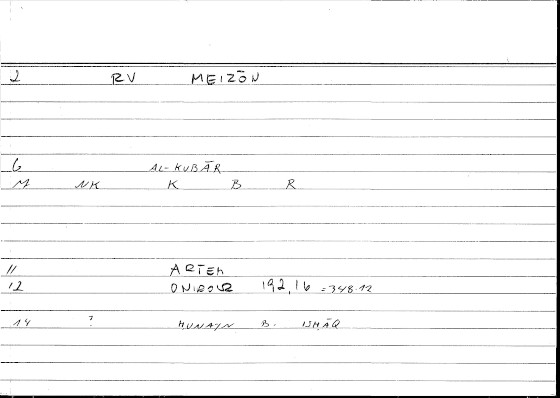 2 RV MEIZŌN
6 AL-KUBĀR
M NK K B R
11 ARTEM
12 ONIROCR 192,16 =348.12
14 ? HUNAYN B. ISḤĀQ